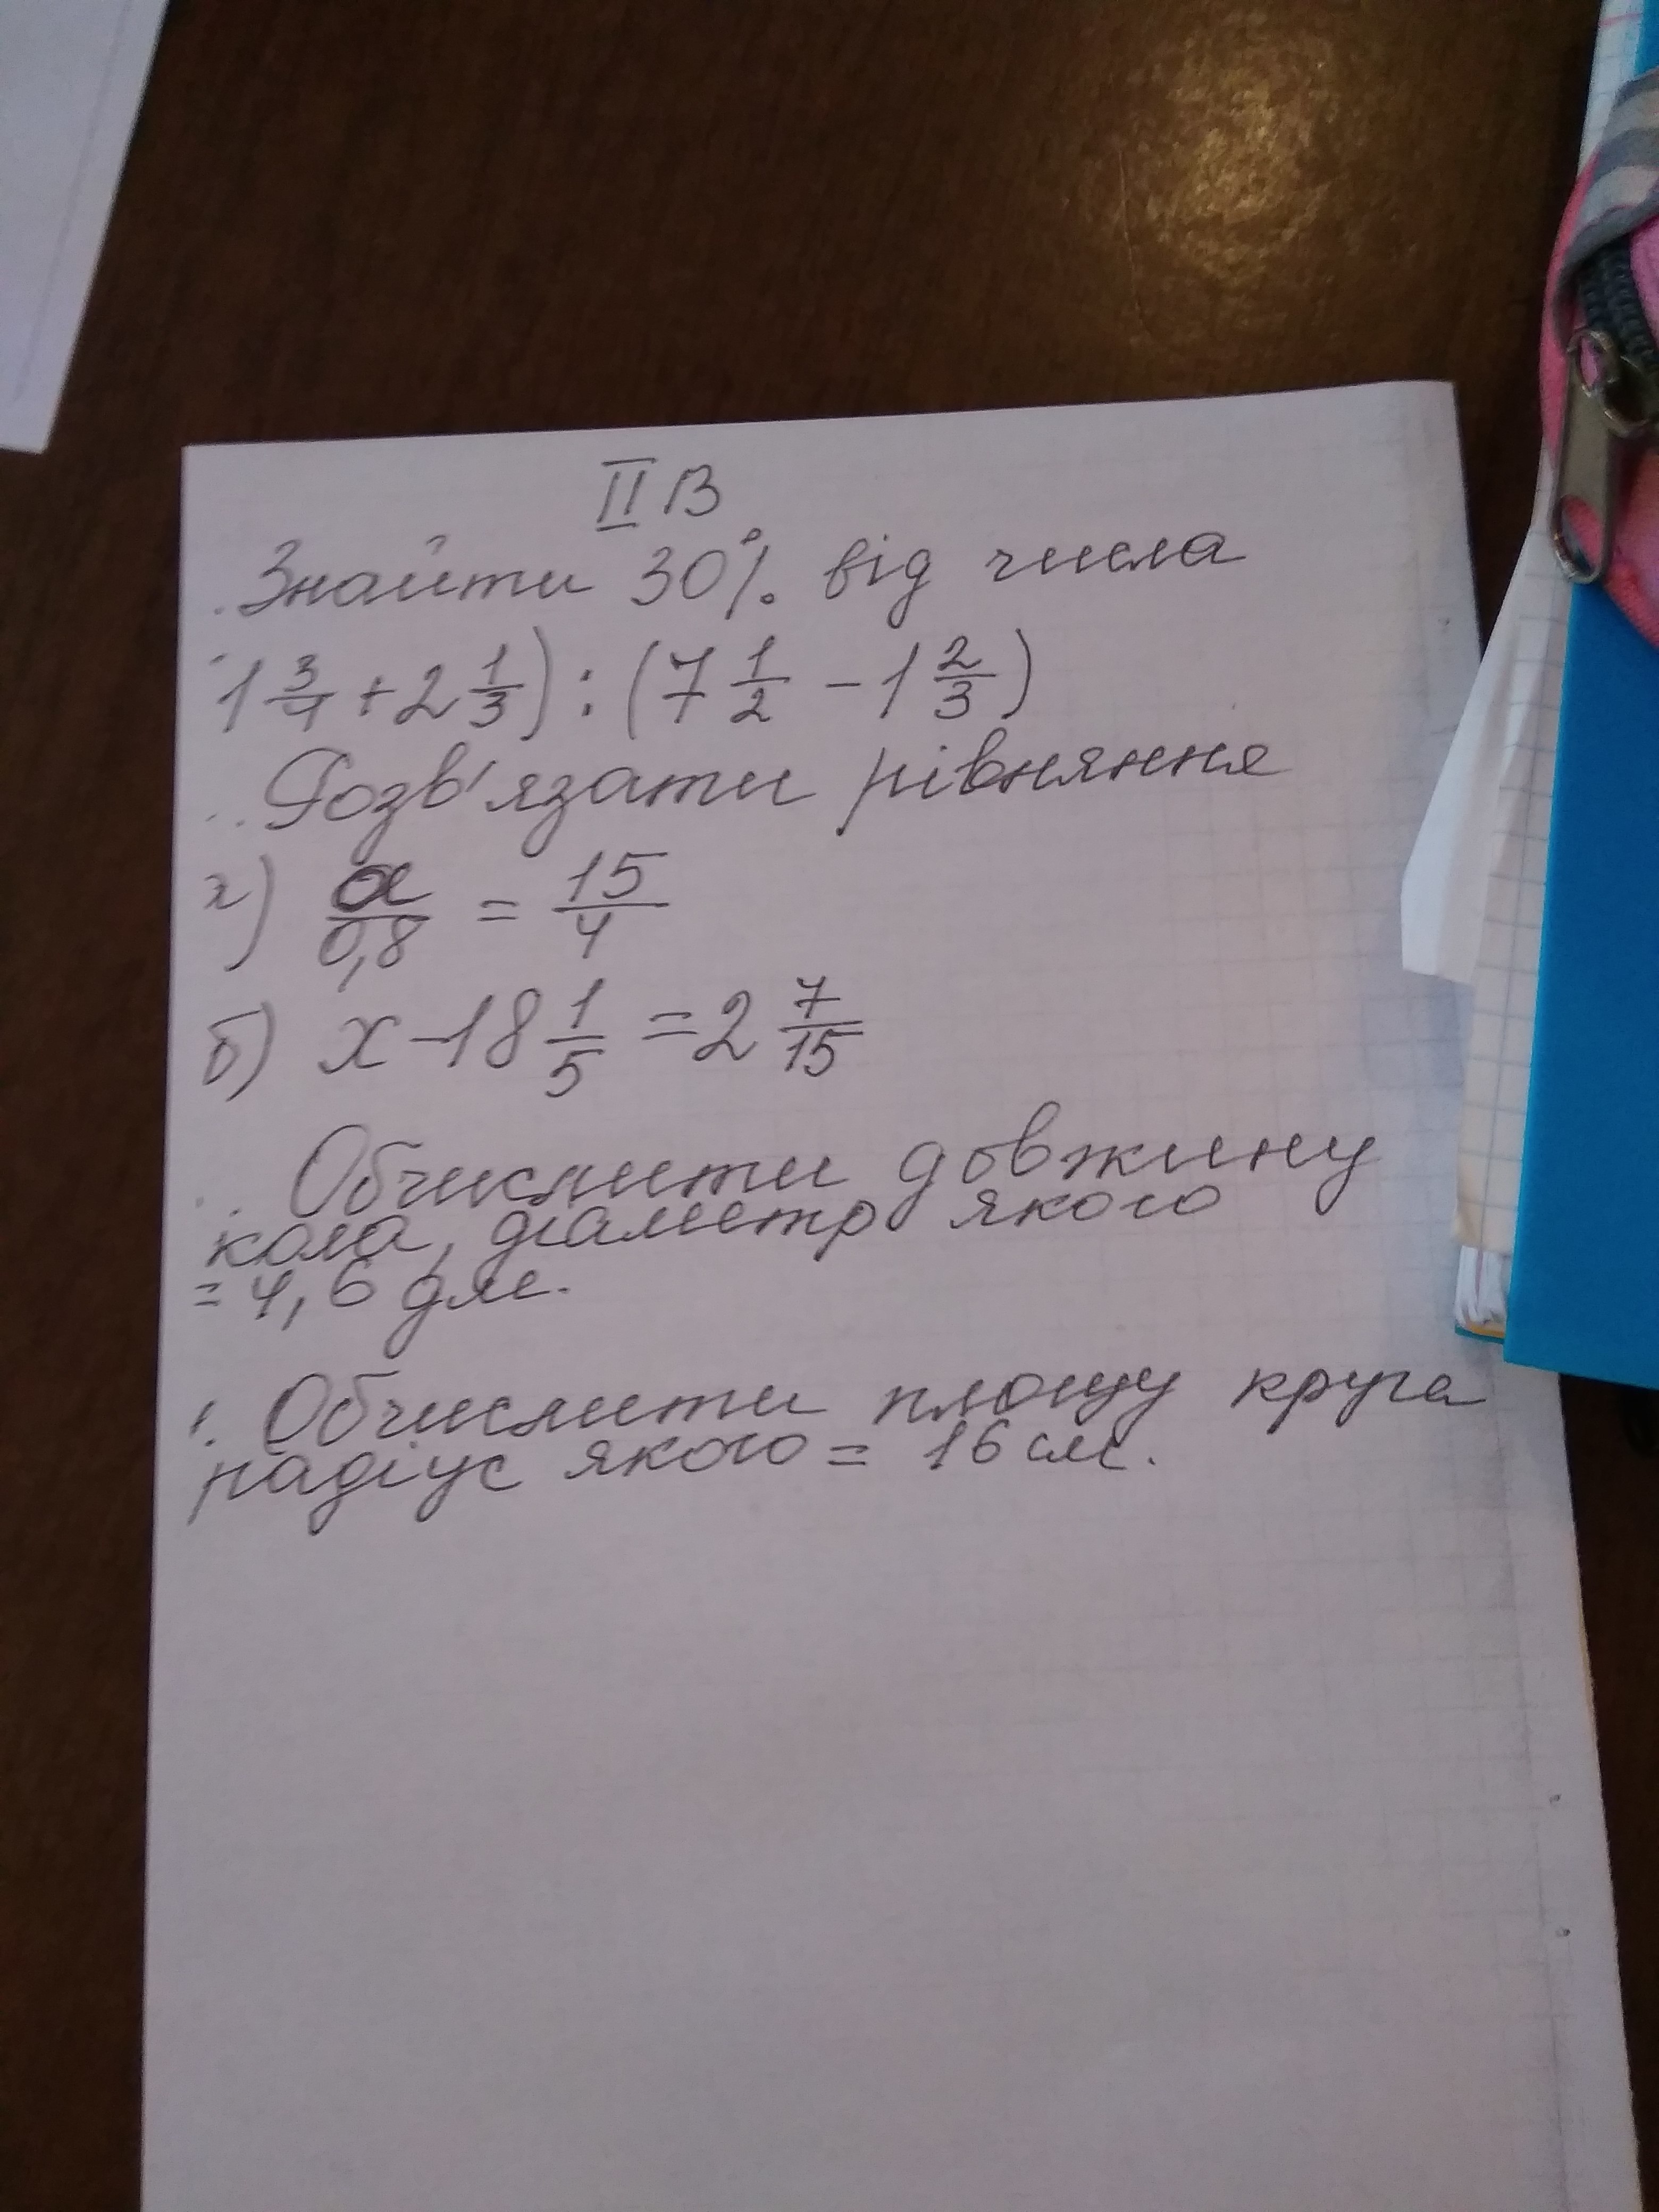 II В
. Знайти 30% від числа
1 3/4 + 2 1/3) : (7 1/2 - 1 2/3)
.. Розв'язати рівняння
а) x/0,8 = 15/4
б) x - 18 1/5 = 2 7/15
. Обчислити довжину
кола, діаметр якого
= 4,6 дм.
. Обчислити площу круга
радіус якого = 16 см.